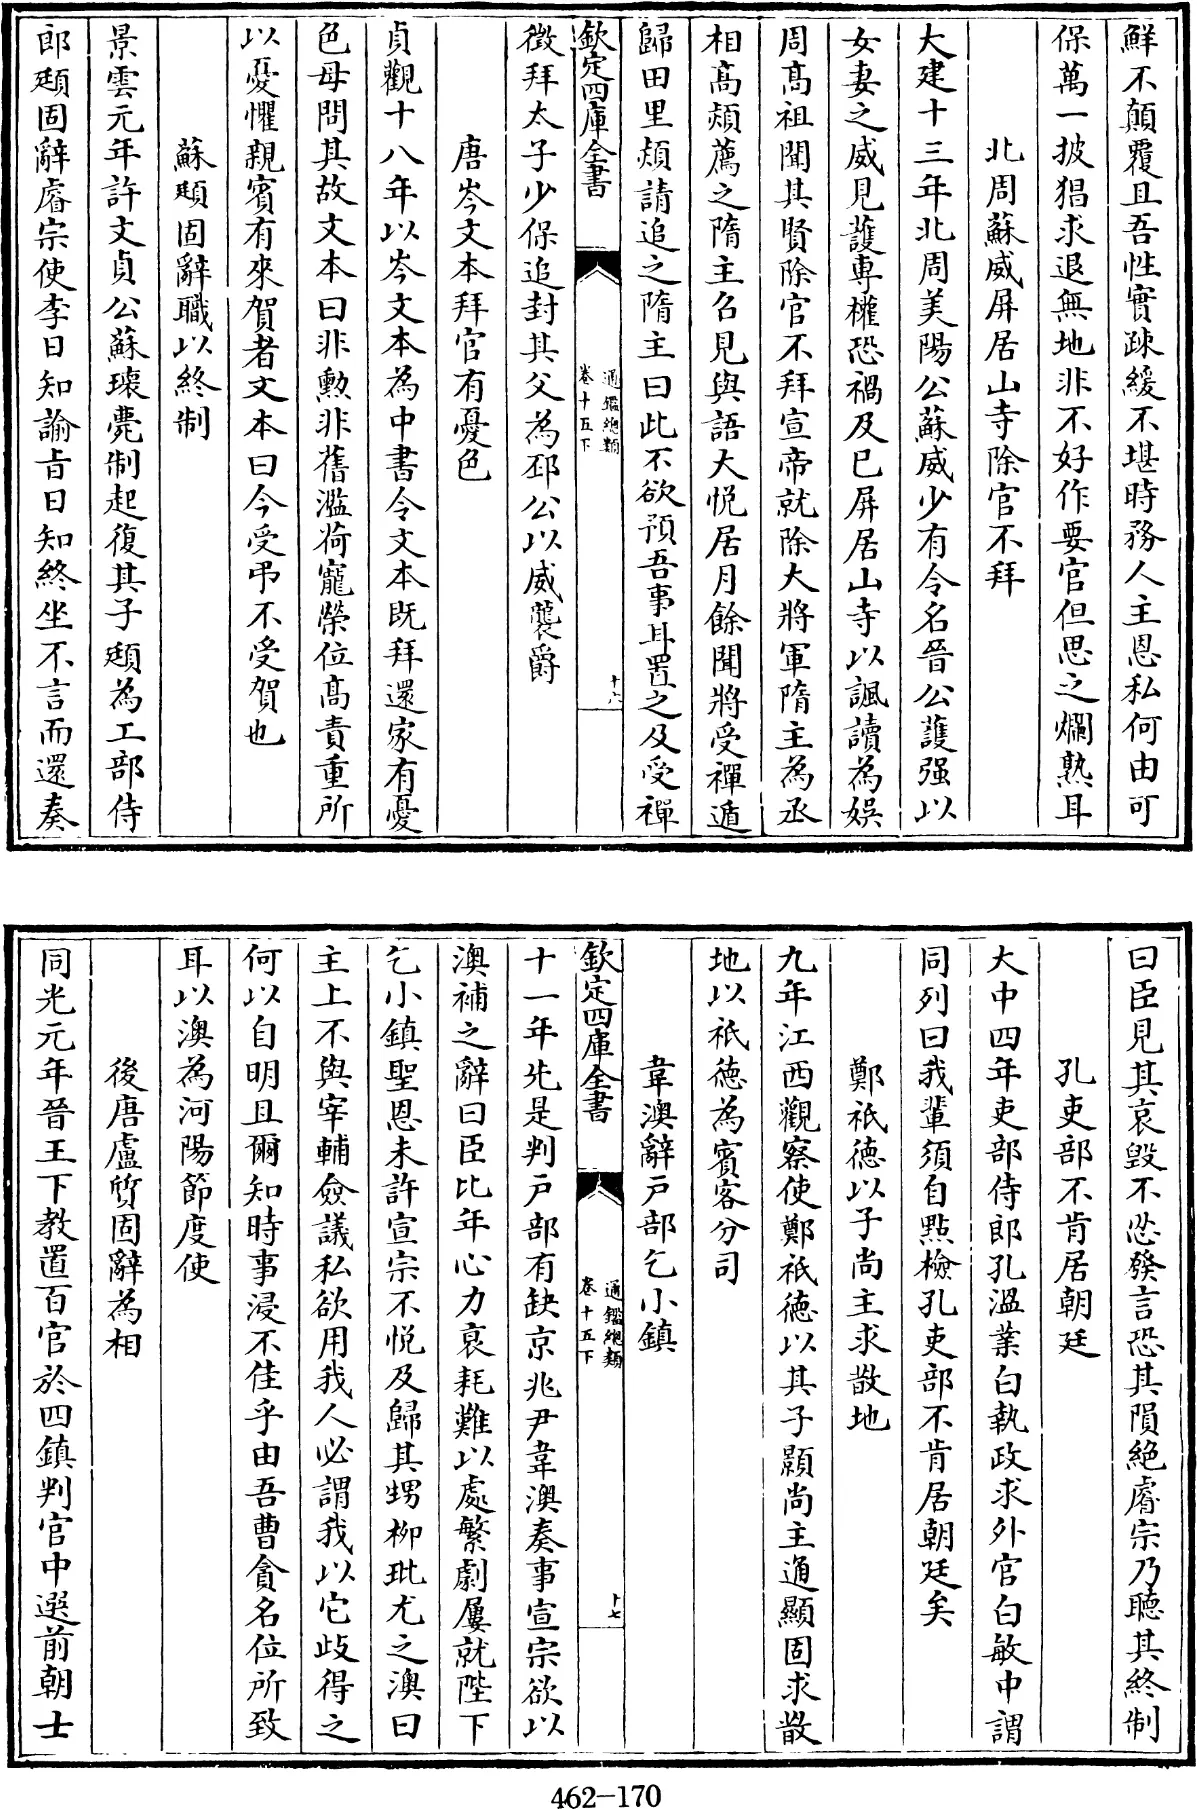 鮮不顛覆且吾性實疎緩不堪時務人主恩私何由可
保萬一披猖求退無地非不好作要官但思之爛熟耳
北周蘇威屏居山寺除官不拜
大建十三年北周美陽公蘇威少有令名晉公護强以
女妻之威見護專權恐禍及已屏居山寺以諷讀為娯
周髙祖聞其賢除官不拜宣帝就除大將軍隋主為丞
相髙熲薦之隋主召見與語大悅居月餘聞將受禪遁
歸田里熲請追之隋主曰此不欲預吾事耳置之及受禪
欽定四庫全書
通鑑總類
卷十五下
十六
徵拜太子少保追封其父為邳公以威襲爵
唐岑文本拜官有憂色
貞觀十八年以岑文本為中書令文本既拜還家有憂
色母問其故文本曰非勲非舊濫荷寵榮位髙責重所
以憂懼親賓有來賀者文本曰今受弔不受賀也
蘇頲固辭職以終制
景雲元年許文貞公蘇瓌薨制起復其子頲為工部侍
郎頲固辭睿宗使李日知諭㫖日知終坐不言而還奏
曰臣見其哀毀不忍發言恐其隕絶睿宗乃聽其終制
孔吏部不肯居朝廷
大中四年吏部侍郎孔溫業白執政求外官白敏中謂
同列曰我輩須自㸃檢孔吏部不肯居朝廷矣
鄭祇德以子尚主求散地
九年江西觀察使鄭祇德以其子顥尚主通顯固求散
地以祇德為賓客分司
韋澳辭戸部乞小鎮
欽定四庫全書
通鑑總類
卷十五下
十七
十一年先是判戸部有缺京兆尹韋澳奏事宣宗欲以
澳補之辭曰臣比年心力衰耗難以處繁劇屢就陛下
乞小鎮聖恩未許宣宗不悅及歸其甥柳玭尤之澳曰
主上不與宰輔僉議私欲用我人必謂我以它歧得之
何以自明且爾知時事浸不佳乎由吾曹貪名位所致
耳以澳為河陽節度使
後唐盧質固辭為相
同光元年晉王下教置百官於四鎮判官中選前朝士
462-170